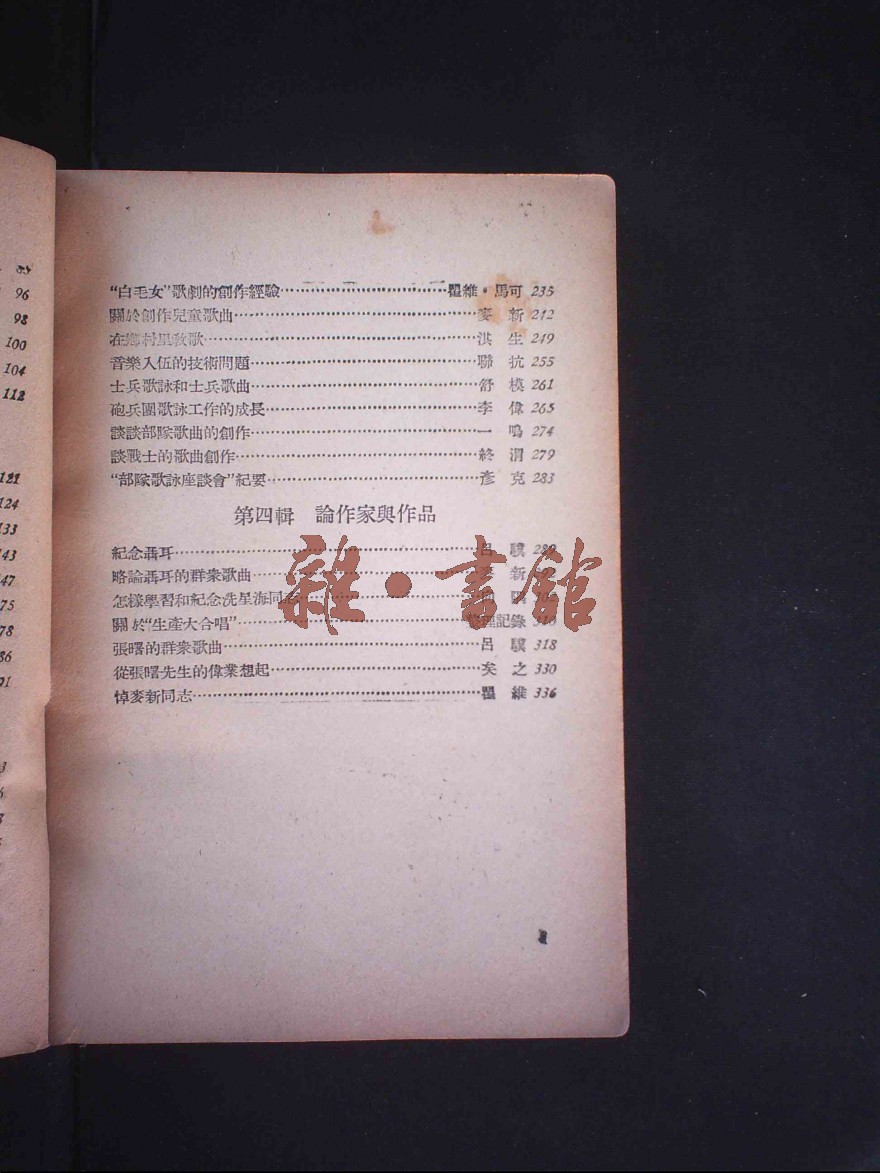 95
96
98
100
104
112
121
124
133
143
147
175
178
186
191
“白毛女”歌劇的創作經驗……瞿維·馬可 235
關於創作兒童歌曲……麥 新 242
在鄉村里教歌……洪 生 249
音樂入伍的技術問題……聯 抗 255
士兵歌詠和士兵歌曲……舒 模 261
砲兵團歌詠工作的成長……李 偉 265
談談部隊歌曲的創作……一 鳴 274
談戰士的歌曲創作……終 渭 279
“部隊歌詠座談會”紀要……彥 克 283
第四輯 論作家與作品
紀念聶耳……呂 驥 289
略論聶耳的群衆歌曲……麥 新
怎樣學習和紀念冼星海同志
關於“生產大合唱”……整理記錄 310
張曙的群衆歌曲……呂 驥 318
從張曙先生的偉業想起……矣 之 330
悼麥新同志……瞿 維 336
雜·書館